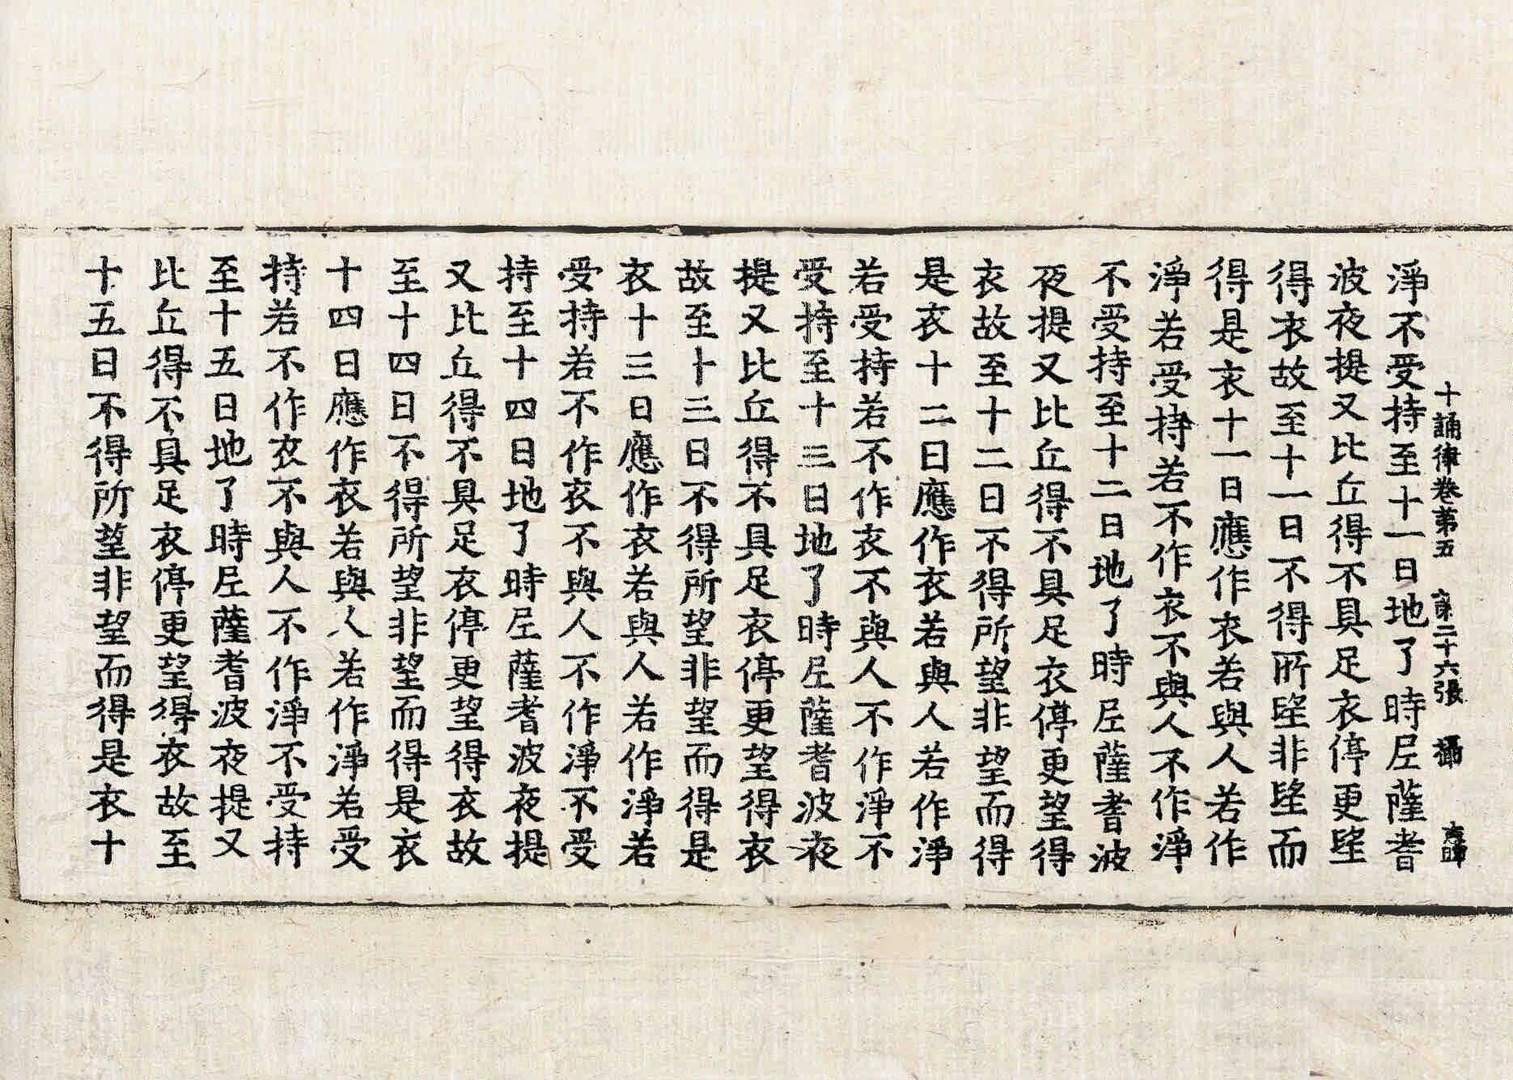 十誦律卷第五 第二十六張 攝
淨不受持至十一日地了時尼薩耆
波夜提又比丘得不具足衣停更望
得衣故至十一日不得所望非望而
得是衣十一日應作衣若與人若作
淨若受持若不作衣不與人不作淨
不受持至十二日地了時尼薩耆波
夜提又比丘得不具足衣停更望得
衣故至十二日不得所望非望而得
是衣十二日應作衣若與人若作淨
若受持若不作衣不與人不作淨不
受持至十三日地了時尼薩耆波夜
提又比丘得不具足衣停更望得衣
故至十三日不得所望非望而得是
衣十三日應作衣若與人若作淨若
受持若不作衣不與人不作淨不受
持至十四日地了時尼薩耆波夜提
又比丘得不具足衣停更望得衣故
至十四日不得所望非望而得是衣
十四日應作衣若與人若作淨若受
持若不作衣不與人不作淨不受持
至十五日地了時尼薩耆波夜提又
比丘得不具足衣停更望得衣故至
十五日不得所望非望而得是衣十